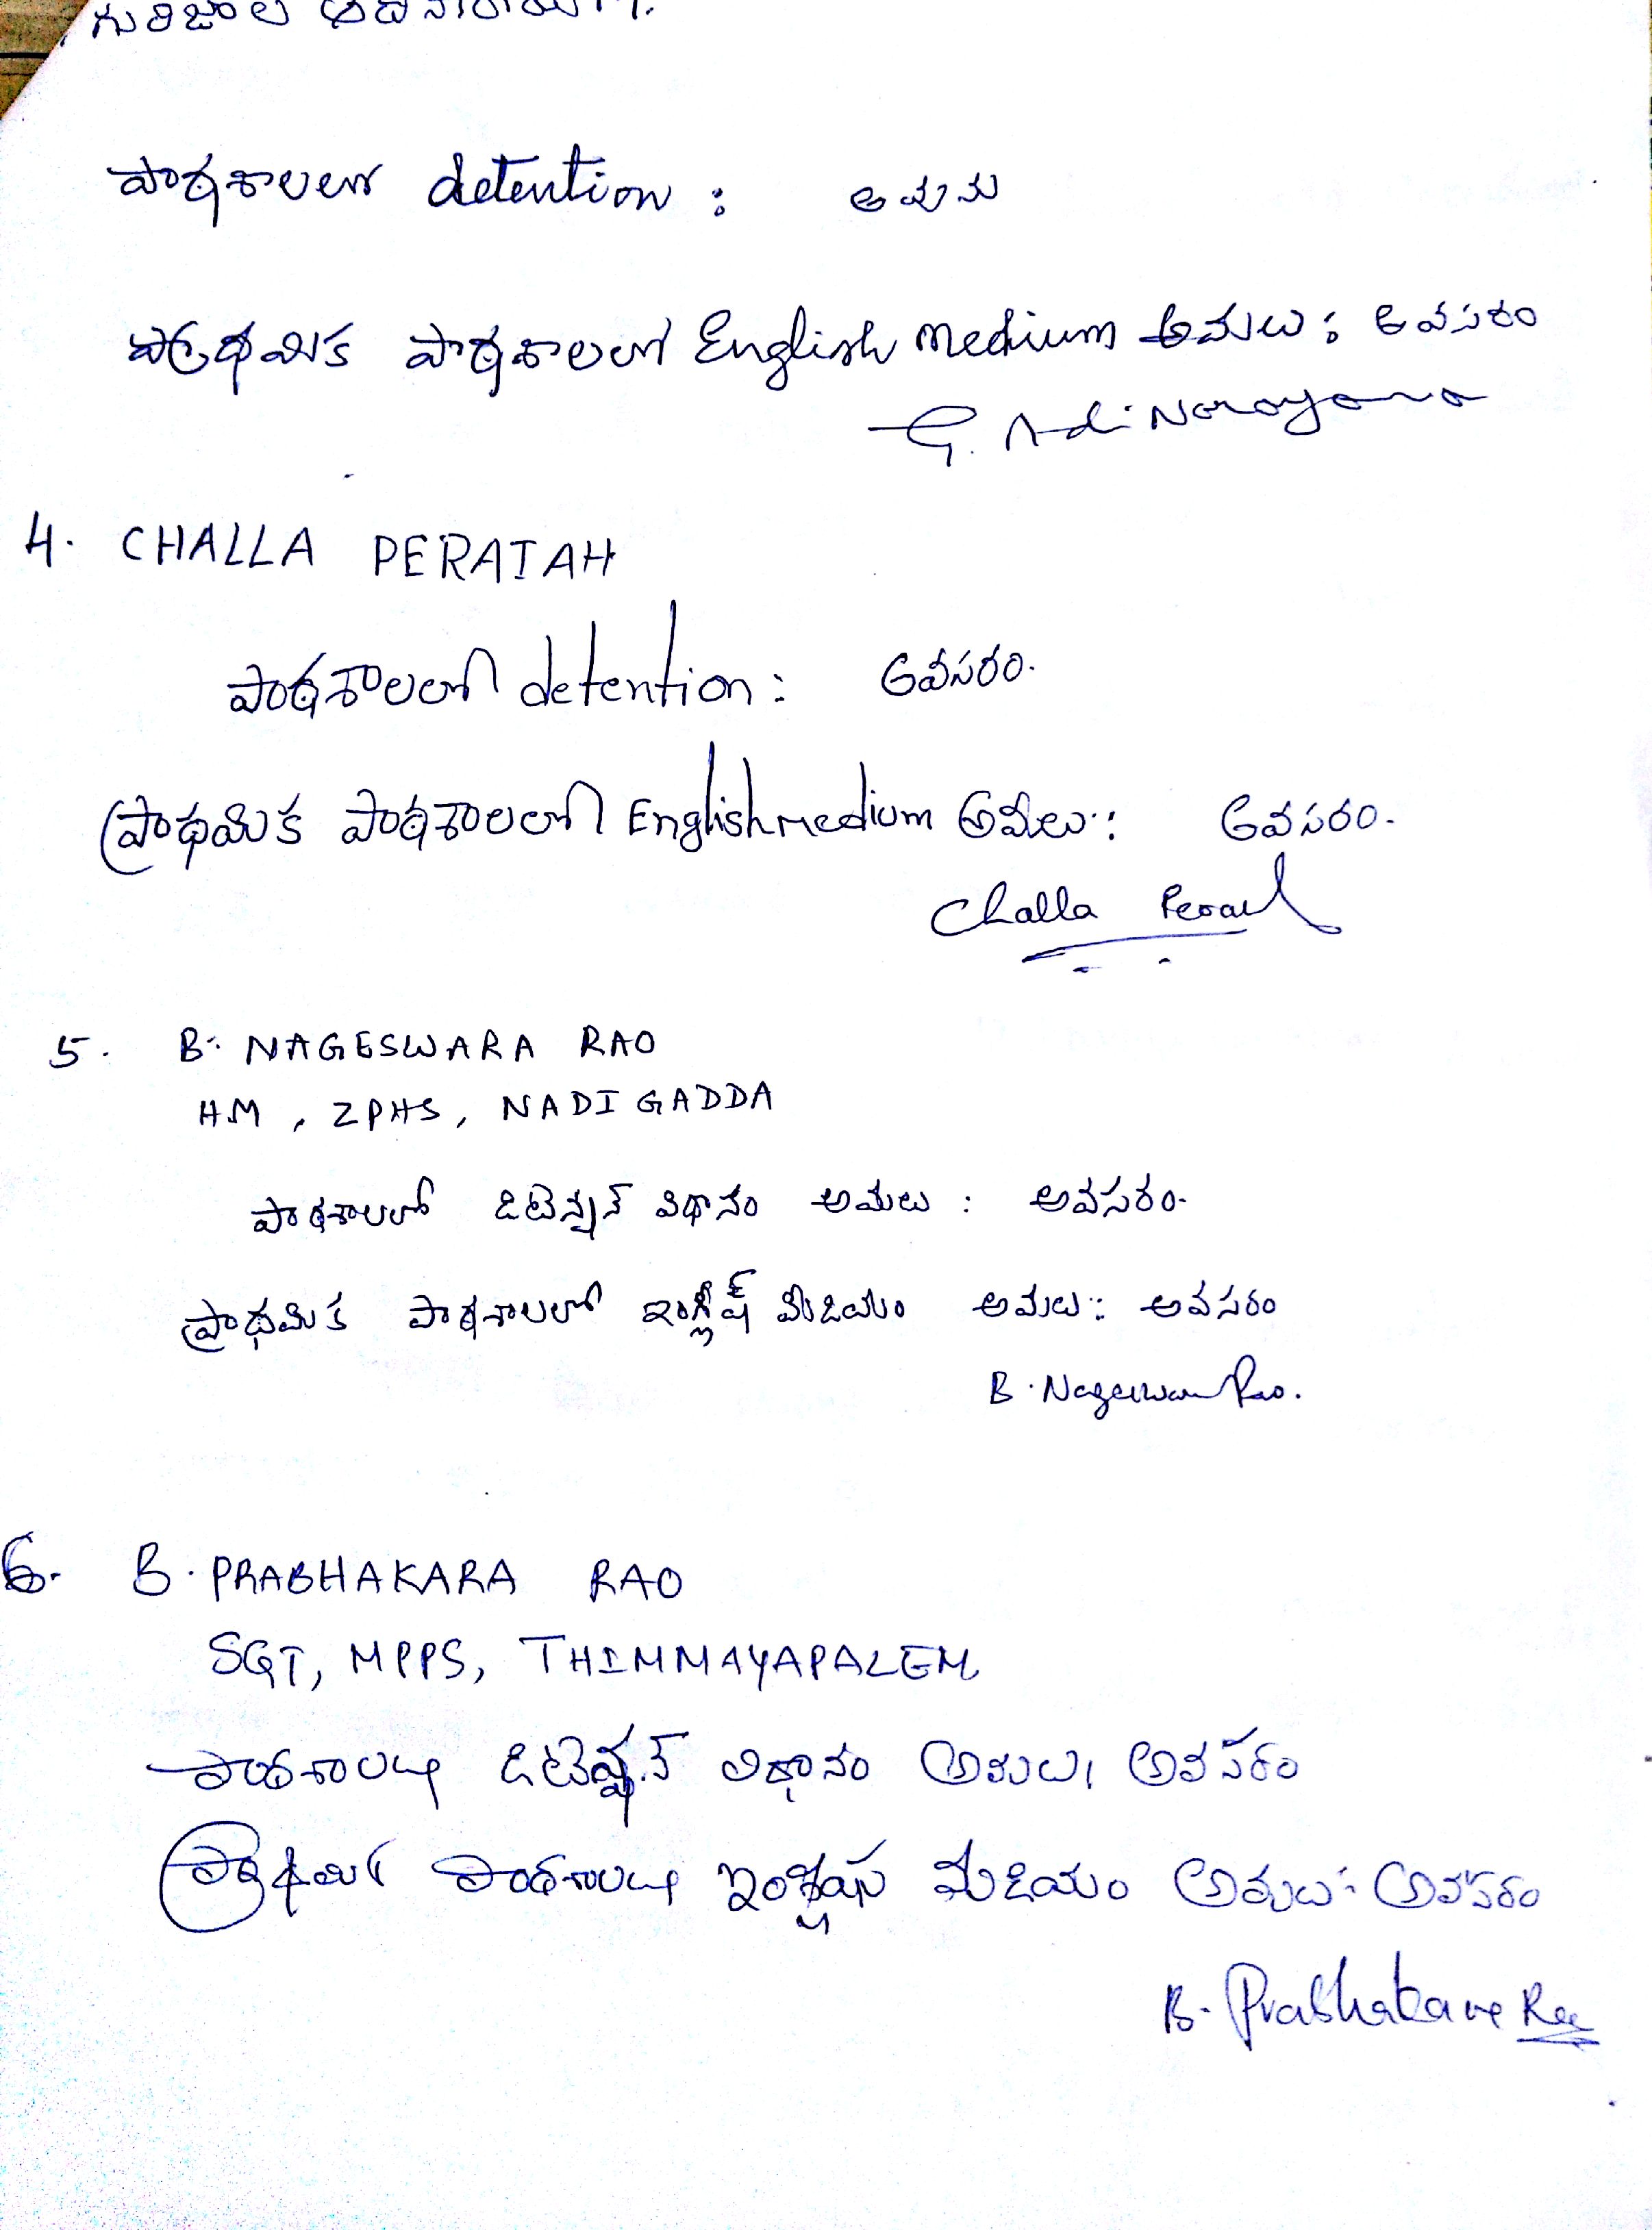 గురిజాల ఆదినారాయణ.
పాఠశాలలో detention : అవును
ప్రాథమిక పాఠశాలలో English medium అమలు : అవసరం
G. Adi Narayana
4. CHALLA PERAIAH
పాఠశాలలో detention : అవసరం.
ప్రాథమిక పాఠశాలలో English medium అమలు : అవసరం.
Challa Peraiah
5. B. NAGESWARA RAO
HM, ZPHS, NADIGADDA
పాఠశాలలో డిటెన్షన్ విధానం అమలు : అవసరం.
ప్రాథమిక పాఠశాలలో ఇంగ్లీష్ మీడియం అమలు : అవసరం
B. Nageswara Rao.
6. B. PRABHAKARA RAO
SGT, MPPS, THIMMAYAPALEM
పాఠశాలల్లో డిటెన్షన్ విధానం అమలు : అవసరం
ప్రాథమిక పాఠశాలల్లో ఇంగ్లీషు మీడియం అమలు : అవసరం
B. Prabhakara Rao